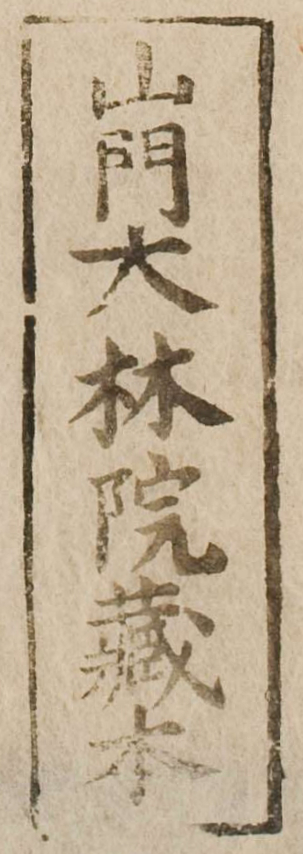 山門大林院藏本